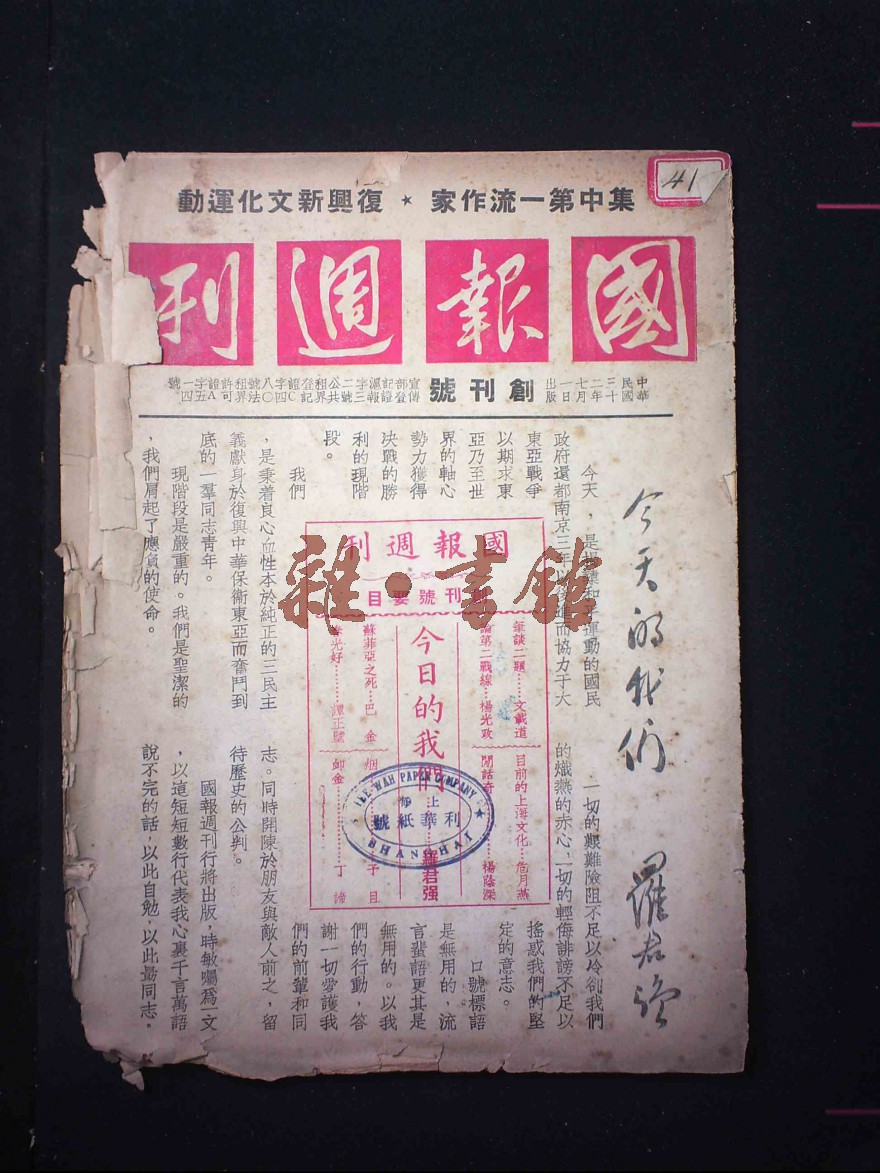 集中第一流作家 ★ 復興新文化運動
41
國報週刊
中華民國三十二年七月一日出版
創刊號
宣傳部登記證滬報字三二號公共租界登記證C字四八〇號法租界許可證A字五一四號
今天的我們 羅君強
今天,是
和平運動的國民
政府還都南京三年以後進而協力于大
東亞戰爭
以期求東
亞乃至世
界的軸心
勢力獲得
決戰的勝
利的現階
段。
我們
,是秉着良心血性本於純正的三民主
義獻身於復興中華保衞東亞而奮鬥到
底的一羣同志青年。
現階段是嚴重的。我們是聖潔的
,我們肩起了應負的使命。
一切的艱難險阻不足以冷卻我們
的熾燕的赤心,一切的輕侮誹謗不足以
搖惑我們的堅
定的意志。
口號標語
是無用的,流
言蜚語更其是
無用的。以我
們的行動,答
謝一切愛護我
們的前輩和同
志。同時開陳於朋友與敵人前之,留
待歷史的公判。
國報週刊行將出版,時敏囑爲一文
,以這短短數行代表我心裏千言萬語
說不完的話,以此自勉,以此勗同志。
國報週刊
創刊號要目
筆談二題……文載道
論第二戰線…楊光政
目前的上海文化…危月燕
閒話奇……楊蔭深
今日的我們……羅君強
蘇菲亞之死…巴金
春光好……譚正璧
……予且
卸金……丁諦
LEE WAH PAPER COMPANY
上海
利華紙號
SHANGHAI
雜·書館